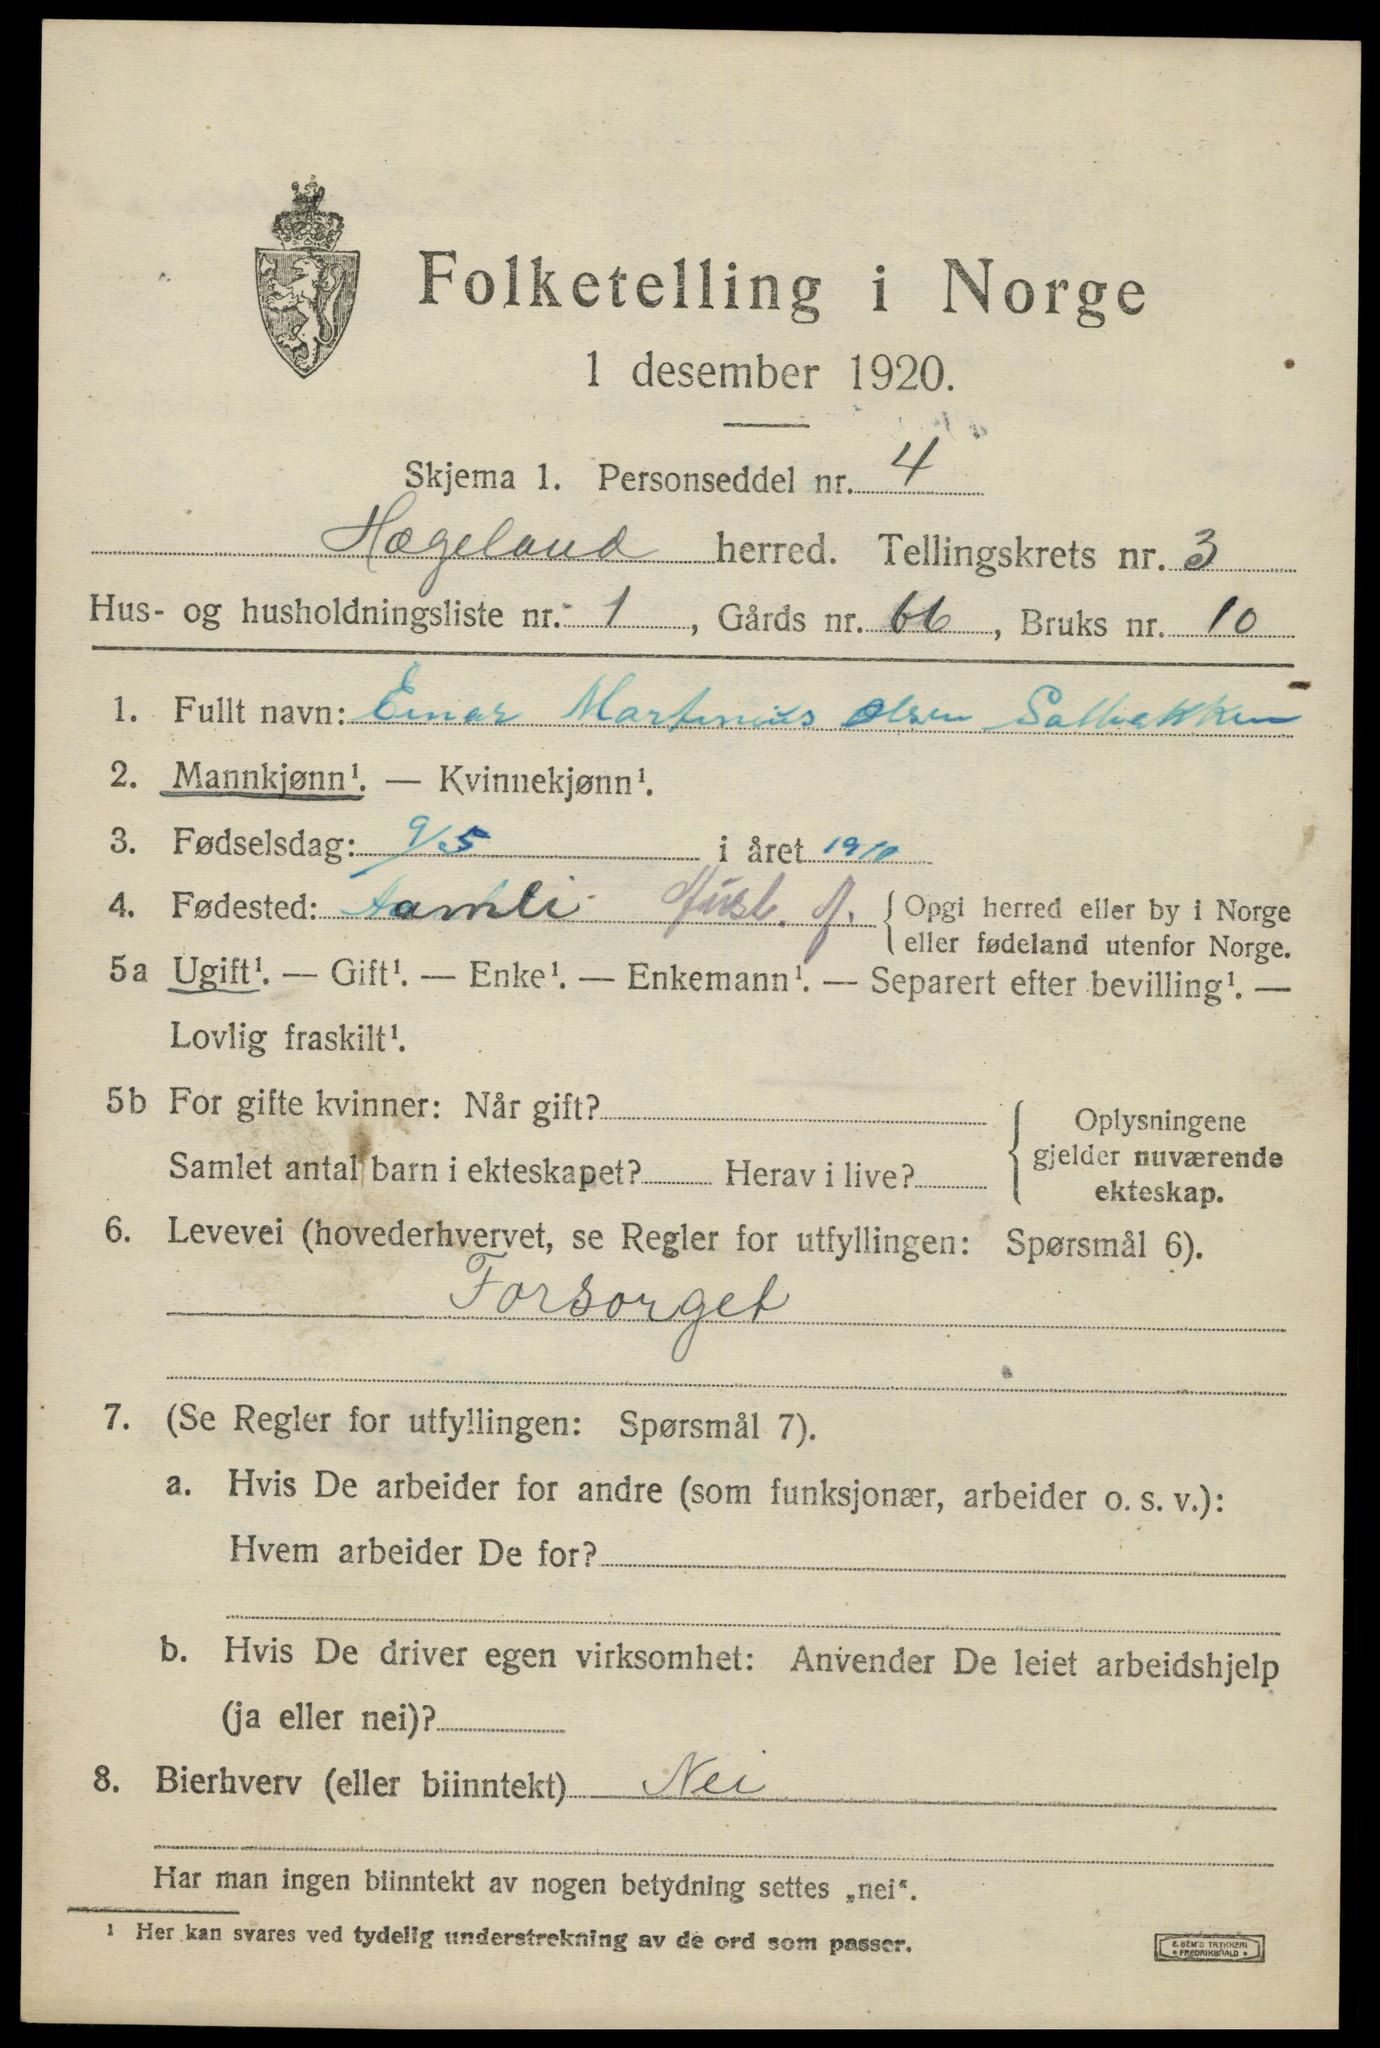 Folketelling i Norge
1 desember 1920.
Skjema 1. Personseddel nr. 4
Hægeland herred. Tellingskrets nr. 3
Hus- og husholdningsliste nr. 1, Gårds nr. 66, Bruks nr. 10
1. Fullt navn: Einar Martinius Olsen Solbakken
2. Mannkjønn¹. — Kvinnekjønn¹.
3. Fødselsdag: 9/5 i året 1910
4. Fødested: Aamli { Opgi herred eller by i Norge
eller fødeland utenfor Norge.
5a Ugift¹. — Gift¹. — Enke¹. — Enkemann¹. — Separert efter bevilling¹. —
Lovlig fraskilt¹.
5b For gifte kvinner: Når gift?
Samlet antal barn i ekteskapet? Herav i live?
Oplysningene
gjelder nuværende
ekteskap.
6. Levevei (hovederhvervet, se Regler for utfyllingen: Spørsmål 6).
Forsorget
7. (Se Regler for utfyllingen: Spørsmål 7).
a. Hvis De arbeider for andre (som funksjonær, arbeider o. s. v.):
Hvem arbeider De for?
b. Hvis De driver egen virksomhet: Anvender De leiet arbeidshjelp
(ja eller nei)?
8. Bierhverv (eller biinntekt) Nei
Har man ingen biinntekt av nogen betydning settes „nei“.
¹ Her kan svares ved tydelig understrekning av de ord som passer.
E. SEM'S TRYKKERI
FREDRIKSHALD